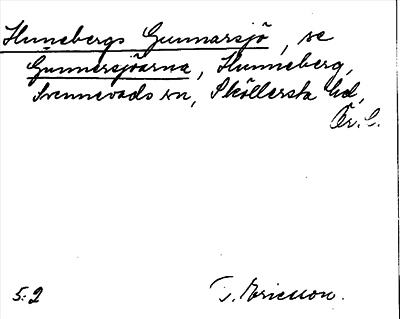 Hunnebergs Gunnarsjö, se
Gunnersjöarna, Hunneberg,
Svennevads sn, Sköllersta hd,
Ör. l.
5:2 T. Ericsson.